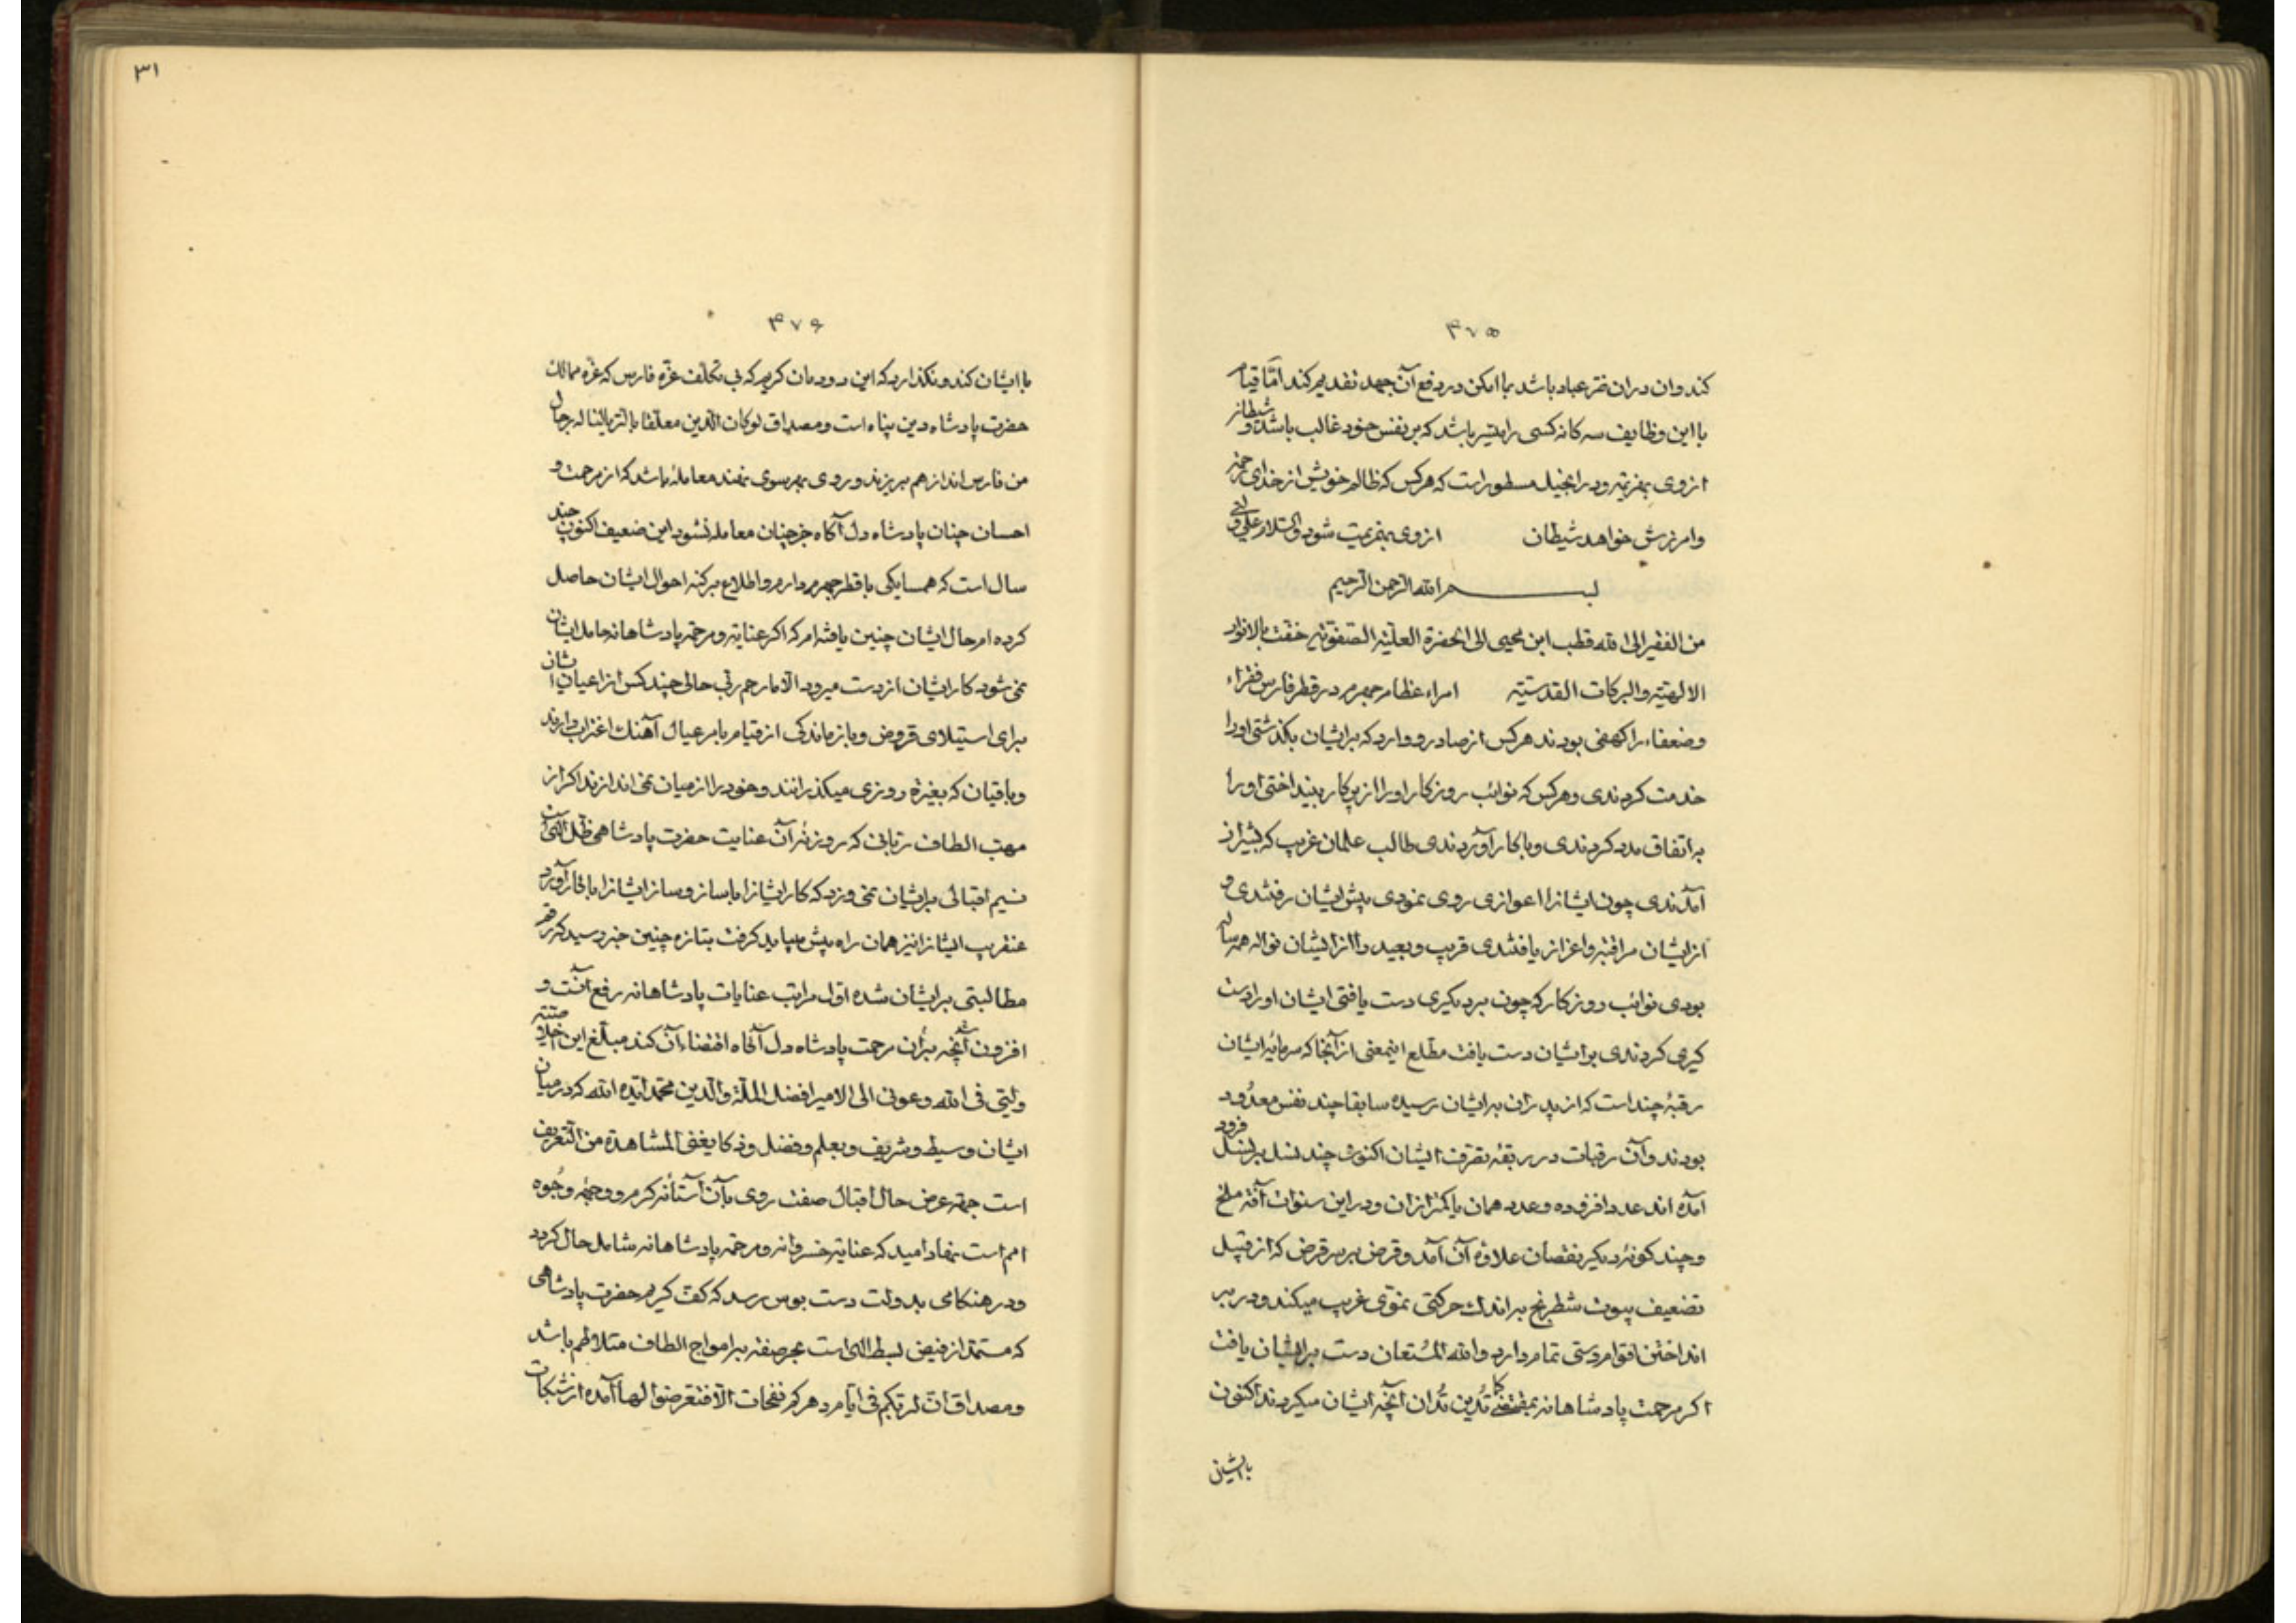 ۴۷۵
کند وان دران ضرّ عباد باشد بما امکن در دفع آن جهد تقدیم کند امّا قیام
با این وظایف سه کانه کسی را میسّر باشد که بر نفس خود غالب باشد و شیطان
از وی بهزیمت و در انجیل مسطور است که هر کس که ظالم خویش از خدای
وامرزش خواهد شیطان از وی بهزیمت شود والسّلام علی
بسم الله الرحمن الرحیم
من الفقیر الی الله قطب ابن محیی الی الحضرة العلیّه الصّفویّه حفّت بالانوار
الالهیّه والبرکات القدسیّه امراء عظام جهرم در قطر فارس فقراء
وضعفاء را کهفی بودند هر کس از صادر و وارد که بر ایشان بکذشتی او را
خدمت کردندی وهر کس که نوائب روزکار او را از پرکار بینداختی او را
به اتفاق مدد کردندی وبا کار آوردندی طالب علمان غریب که بشیراز
آمدندی چون ایشانرا اعوازی روی نمودی پیش ایشان رفتندی و
از ایشان مرافقه واعزاز یافتندی قریب وبعید را از ایشان نواله همه ساله
بودی نوائب روزکار که چون بر دیکری دست یافتی ایشان او را دست
کیری کردندی بر ایشان دست یافت مطلع اینمعنی از آنجا که سرمایه ایشان
رقبهٔ چند است که از پدران بر ایشان رسیده سابقا چند نفس معدود
بودند وآن رقبات در ربقه تصرف ایشان اکنون چند نسل بر نسل فزود
آمده اند عدد افزوده وعدد همان یا کمتر ازان ودر این سنوات آفة ملخ
وچند کونه دیکر نقصان علاوهٔ آن آمد وقرض بر سر قرض که از قبیل
تضعیف بیوت شطرنج به اندک حرکتی نموّی غریب میکند ودر بر
انداختن اقوام دستی تمام دارد والله المستعان دست بر ایشان یافت
اکر مرحمت پادشاهانه بمقتضی کما تُدین تُدان آنچه ایشان میکردند اکنون
باایشان
۳۱
۴۷۶
باایشان کند ونکذارد که این دودمان کریم که بی تکلّف غرّه فارس که غرّه ممالک
حضرت پادشاه دین پناه است ومصداق لو کان الدّین معلّقا بالثریّا لناله رجال
من فارس اند از هم بریزند وروی بهر سوی نهند معامله باشد که از مرحمت و
احسان چنان پادشاه دل آکاه جز چنان معامله نشود این ضعیف اکنون چند
سال است که همسایکی با قطر جهرم دارم واطلاع بر کنه احوال ایشان حاصل
کرده ام حال ایشان چنین یافته ام که اکر عنایة ومرحمة پادشاهانه حامل ایشان
نمی شود کار ایشان از دست میرود الّا ما رحم ربّی حالی چند کس از اعیان ایشان
برای استیلای قروض وبازماندکی از قیام بامر عیال آهنک اغتراب دارند
وباقیان که بغیرة روزی میکذرانند وخود را از میان نمی اندازند اکر از
مهبّ الطاف ربّانی که روزنهٔ آن عنایت حضرت پادشاهی ظلّ الّهی است
نسیم اقبالی بر ایشان نمی وزد که کار ایشانرا باساز وساز ایشانرا باکار آورد
عنقریب ایشانرا نیز همان راه پیش میباید کرفت بتازه چنین خبر رسید که رقم
مطالبتی بر ایشان شده اوّل مراتب عنایات پادشاهانه رفع آنست و
افزون آنچه بر آن مرحمت پادشاه دل آکاه اقتضاء آن کند مبلّغ این
ولیّی فی الله وعونی الی الامیر افضل الملّة والّدین محمّد ایّده الله که در میان
ایشان وسیط وشریف وبعلم وفضل وذکا یغنی المشاهدة من التّعریف
است جهة عرض حال اقبال صفت روی بآن آستانه کرم ووجهه وجُوه
امم است نهاد امید که عنایة خسروانه ومرحمة پادشاهانه شامل حال کردد
ودر هنکامی بدولت دست بوس رسد که کفّ کریم حضرت پادشاهی
که مستمدّ از فیض بسط الّهی است بحر صفته بر امواج الطاف متلاطم باشد
ومصداق انّ لربّکم فی ایّام دهرکم نفحات الّا فتعرضوا لها آمده از